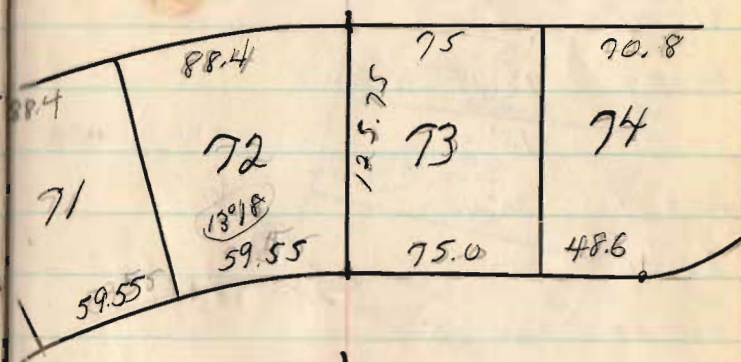 88.4
75
70.8
88.4
125.75
72
73
74
71
13°18'
59.55
75.0
48.6
59.55